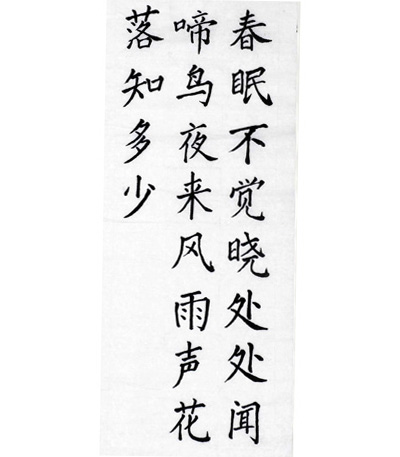 春眠不觉晓处处闻
啼鸟夜来风雨声花
落知多少